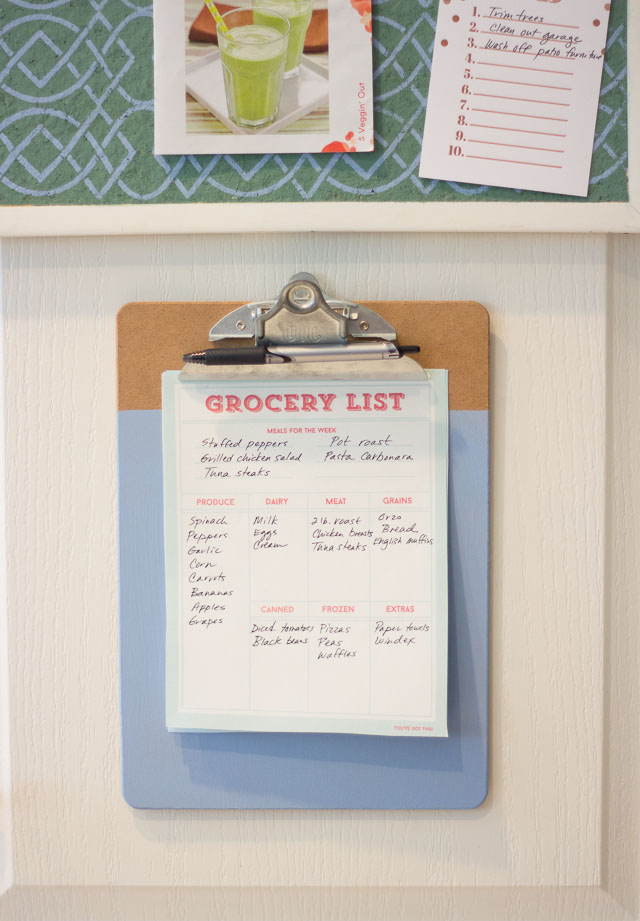 85 Veggin' Out
1. Trim trees
2. Clean out garage
3. Wash off patio furniture
4.
5.
6.
7.
8.
9.
10.
GROCERY LIST
MEALS FOR THE WEEK
Stuffed peppers Pot roast
Grilled chicken salad Pasta Carbonara
Tuna steaks
PRODUCE
Spinach
Peppers
Garlic
Corn
Carrots
Bananas
Apples
Grapes
DAIRY
Milk
Eggs
Cream
MEAT
2 lb. roast
Chicken breasts
Tuna steaks
GRAINS
Orzo
Bread
English muffins
CANNED
Diced tomatoes
Black beans
FROZEN
Pizzas
Peas
Waffles
EXTRAS
Paper towels
Windex
YOU'VE GOT THIS!